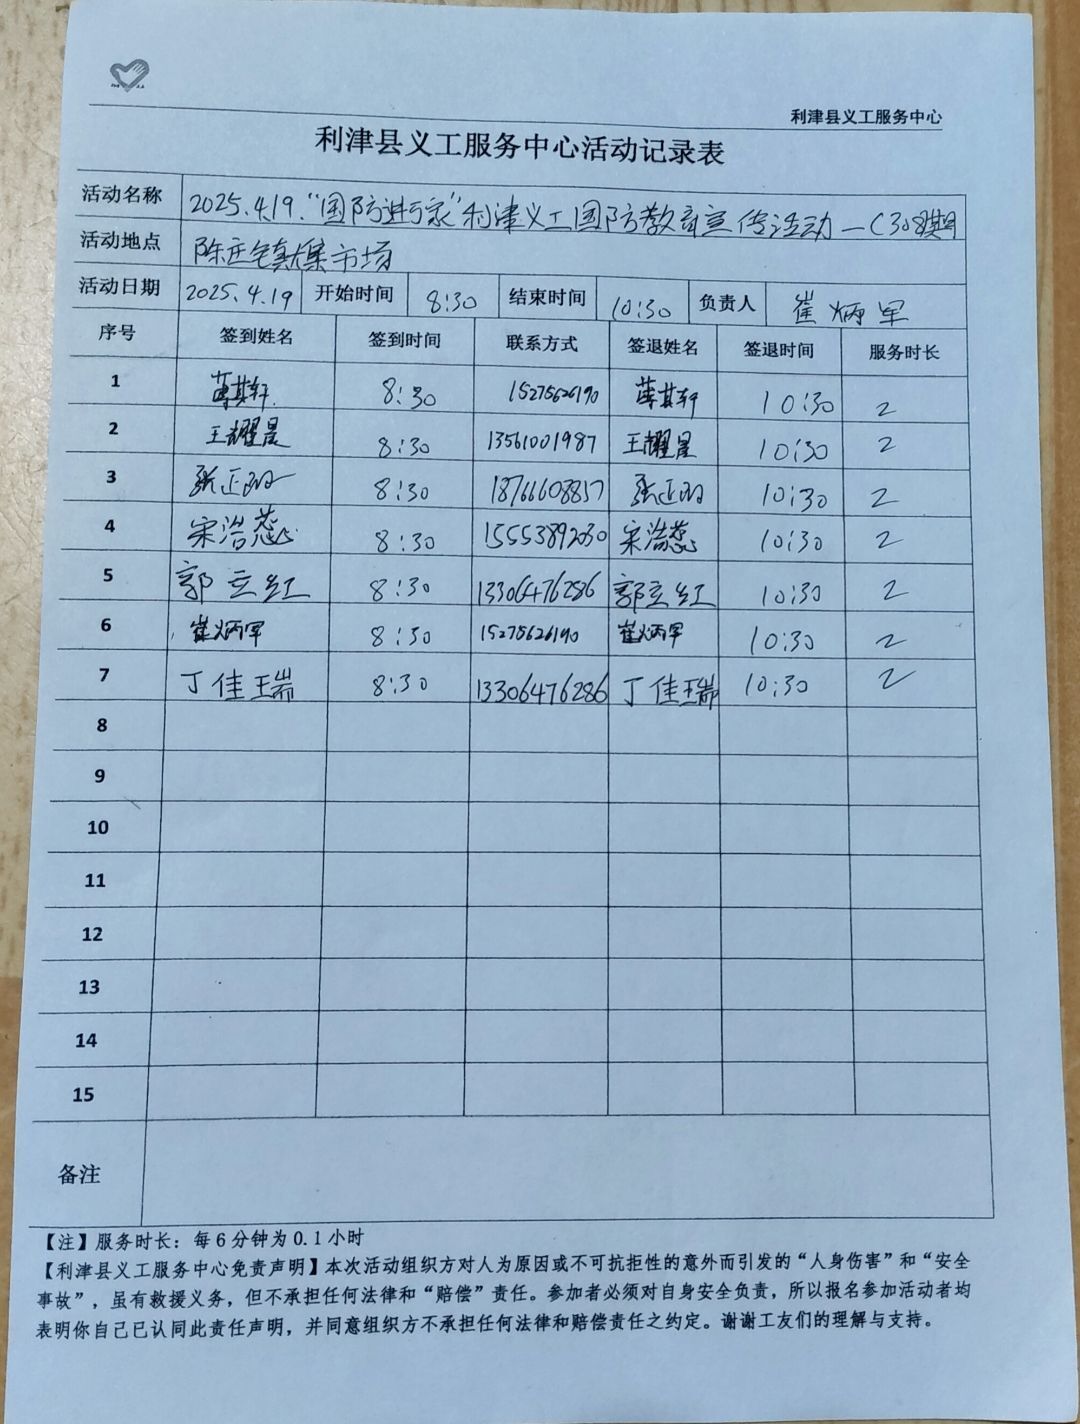 利津县义工服务中心
利津县义工服务中心活动记录表
活动名称 2025.4.19."国防进万家"利津义工国防教育宣传活动—(308期
活动地点 陈庄镇大集市场
活动日期 2025.4.19 开始时间 8:30 结束时间 10:30 负责人 崔炳军
序号 签到姓名 签到时间 联系方式 签退姓名 签退时间 服务时长
1 薄其轩 8:30 15275626190 薄其轩 10:30 2
2 王耀晨 8:30 13561001987 王耀晨 10:30 2
3 张正 8:30 18766608857 张正 10:30 2
4 宋浩蕊 8:30 15553892030 宋浩蕊 10:30 2
5 郭立红 8:30 13306476286 郭立红 10:30 2
6 崔炳军 8:30 15275626190 崔炳军 10:30 2
7 丁佳瑞 8:30 13306476286 丁佳瑞 10:30 2
8
9
10
11
12
13
14
15
备注
【注】服务时长：每6分钟为0.1小时
【利津县义工服务中心免责声明】本次活动组织方对人为原因或不可抗拒性的意外而引发的“人身伤害”和“安全
事故”，虽有救援义务，但不承担任何法律和“赔偿”责任。参加者必须对自身安全负责，所以报名参加活动者均
表明你自己已认同此责任声明，并同意组织方不承担任何法律和赔偿责任之约定。谢谢工友们的理解与支持。